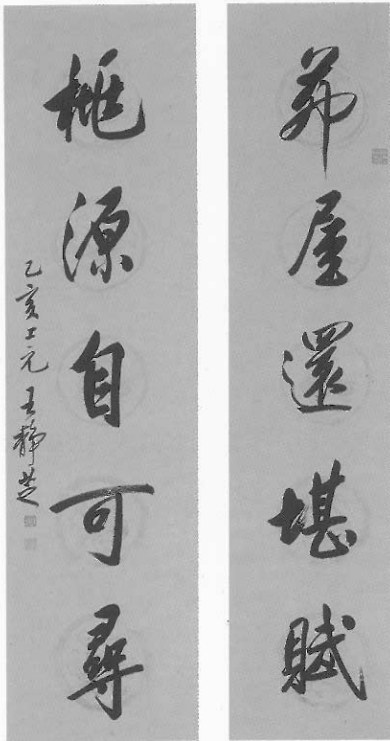 茆屋還堪賦
桃源自可尋
乙亥上元 王靜芝